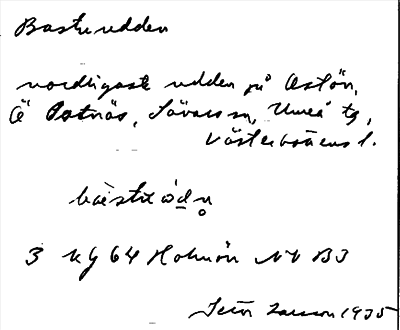 Bastuudden
nordligaste udden på Ostön,
Ö Ostnäs, Sävars sn, Umeå tg,
Västerbottens l.
3 kg 64 Holmön NV B3
Sven Larsson 1935